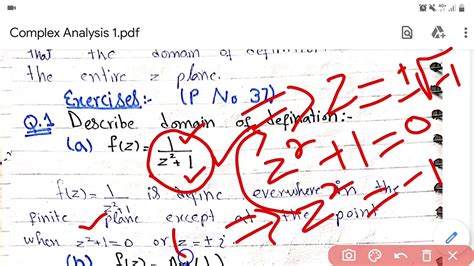 Complex Analysis 1.pdf
that the domain of definition
the entire z plane.
Exercises:- (P No 37)
Q.1 Describe domain of defination:-
(a) f(z) = 1/(z²+1)
=> z = ±√-1
z² + 1 = 0
=> z² = -1
f(z) = 1/(z²+1) is define everywhere in the
finite plane except at the point
when z²+1=0 or z = ± i
(b) f(z) =